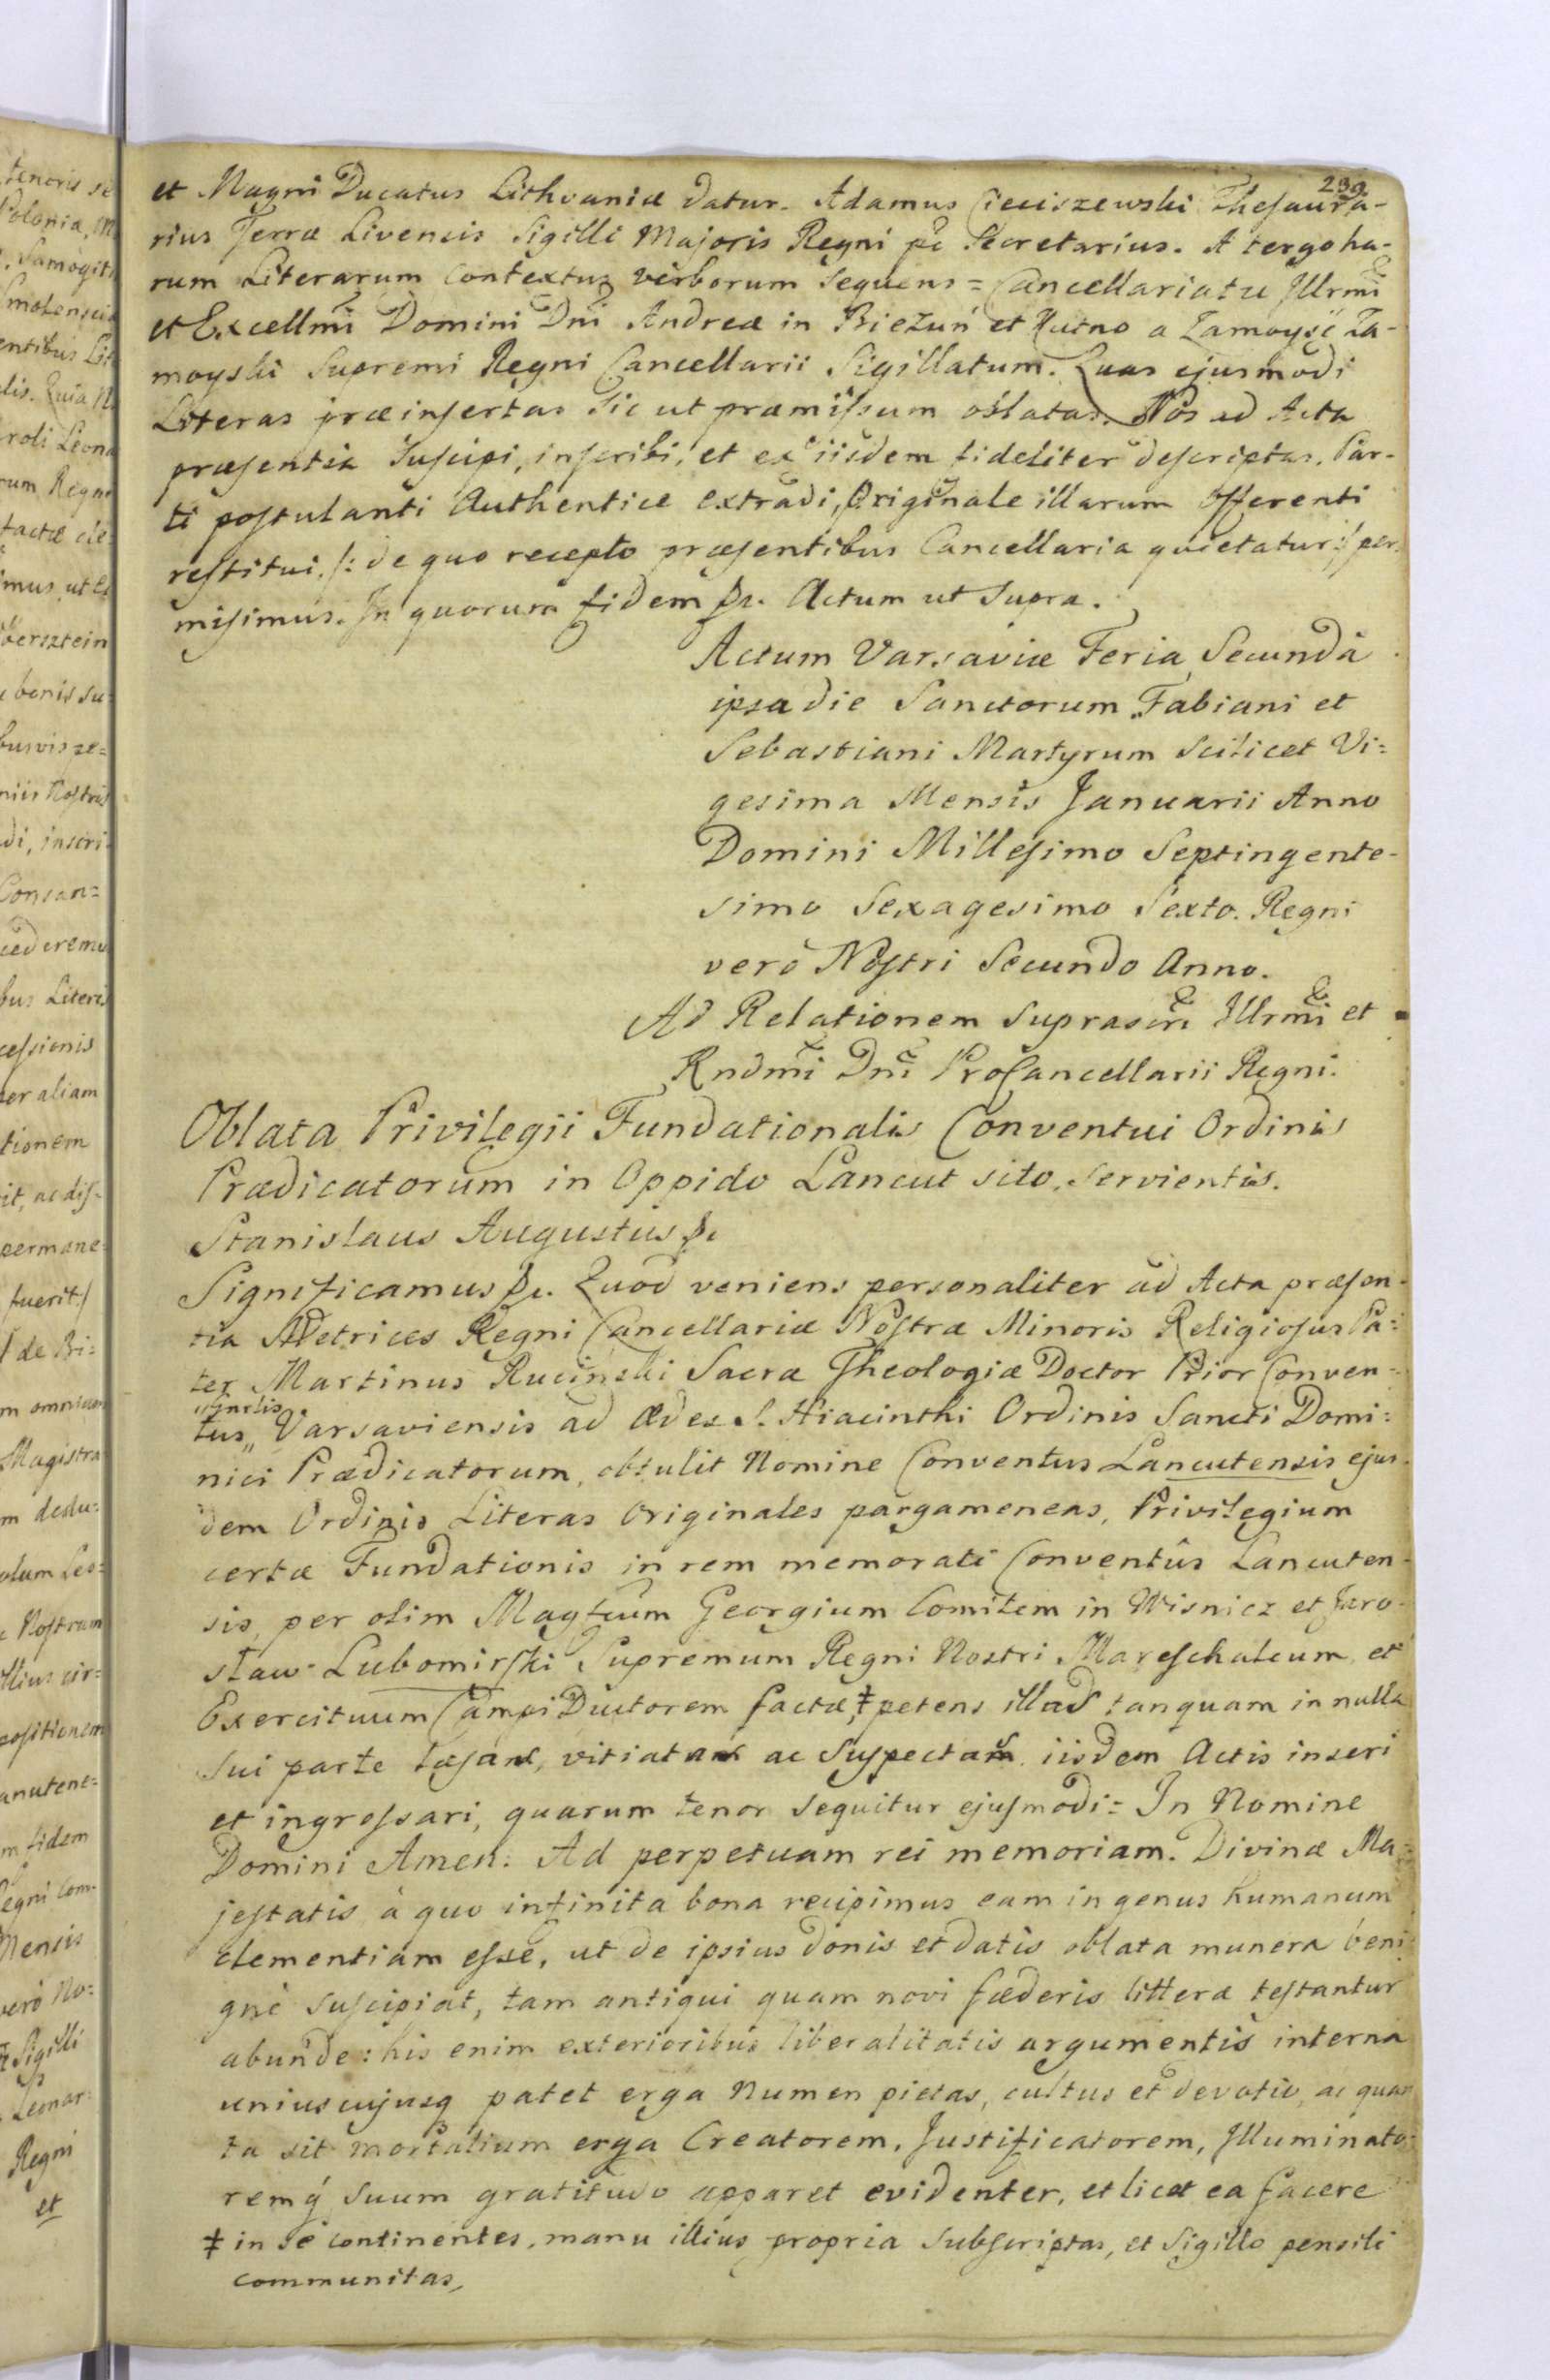 239
et Magni Ducatus Lithvaniæ datur. Adamus Cieciszewski Thesaura-
rius Terræ Livensis Sigilli Majoris Regni pc Secretarius. A tergo ha-
rum Literarum contextus verborum sequens = Cancellariatu Jllrmi
et Excellmi Domini Dni Andreæ in Bieżuń et Kutno a Zamoyście Za-
moyski Supremi Regni Cancellarii Sigillatum. Quas ejusmodi
Literas præinsertas sic ut præmissum oblatas. Nos ad Acta
præsentia suscipi, inscribi, et ex iisdem fideliter descriptas, Par-
ti postulanti Authentice extradi, Originale illarum Offerenti
restitui, /: de quo recepto præsentibus Cancellaria quietatur :/ per-
misimus. In quorum fidem pr. Actum ut supra.
Actum Varsaviæ Feria Secunda
ipsa die Sanctorum Fabiani et
Sebastiani Martyrum scilicet Vi=
gesima Mensis Januarii Anno
Domini Millesimo Septingente-
simo Sexagesimo Sexto. Regni
verò Nostri Secundo Anno.
Ad Relationem suprascri Jllrmi et
Rndmi Dni ProCancellarii Regni.
Oblata Privilegii Fundationalis Conventui Ordinis
Prædicatorum in Oppido Lancut sito, servientis.
Stanislaus Augustus pc
Significamus pc. Quod veniens personaliter ad Acta præsen-
tia Metrices Regni Cancellariæ Nostræ Minoris Religiosus Pa=
ter Martinus Ruciński Sacræ Theologiæ Doctor Prior Conven-
tus Varsaviensis ad Ædes S. Hiacinthi Ordinis Sancti Domi=
nici Prædicatorum, obtulit Nomine Conventus Lancutensis ejus-
dem Ordinis Literas Originales pargameneas, Privilegium
certæ Fundationis in rem memorati Conventûs Lancuten-
sis, per olim Magficum Georgium Comitem in Wisnicz et Jaro-
sław Lubomirski Supremum Regni Nostri Mareschalcum et
Exercituum Campi Ductorem factæ, ‡ petens illas tanquam in nulla
sui parte læsas, vitiatas ac suspectas iisdem Actis inseri
et ingrossari, quarum tenor sequitur ejusmodi = In Nomine
Domini Amen. Ad perpetuam rei memoriam. Divinæ Ma=
jestatis à quo infinita bona recipimus eam in genus humanum
clementiam esse, ut de ipsius donis et datis oblata munera beni
gnè suscipiat, tam antiqui quam novi fœderis litteræ testantur
abunde: his enim exterioribus liberalitatis argumentis interna
uniuscujusq patet erga Numen pietas, cultus et devotio, ac quan
ta sit mortalium erga Creatorem, Justificatorem, Jlluminato=
remq suum gratitudo apparet evidenter, et licet ea facere
‡ in se continentes, manu illius propria subscriptas, et Sigillo pensili
communitas,